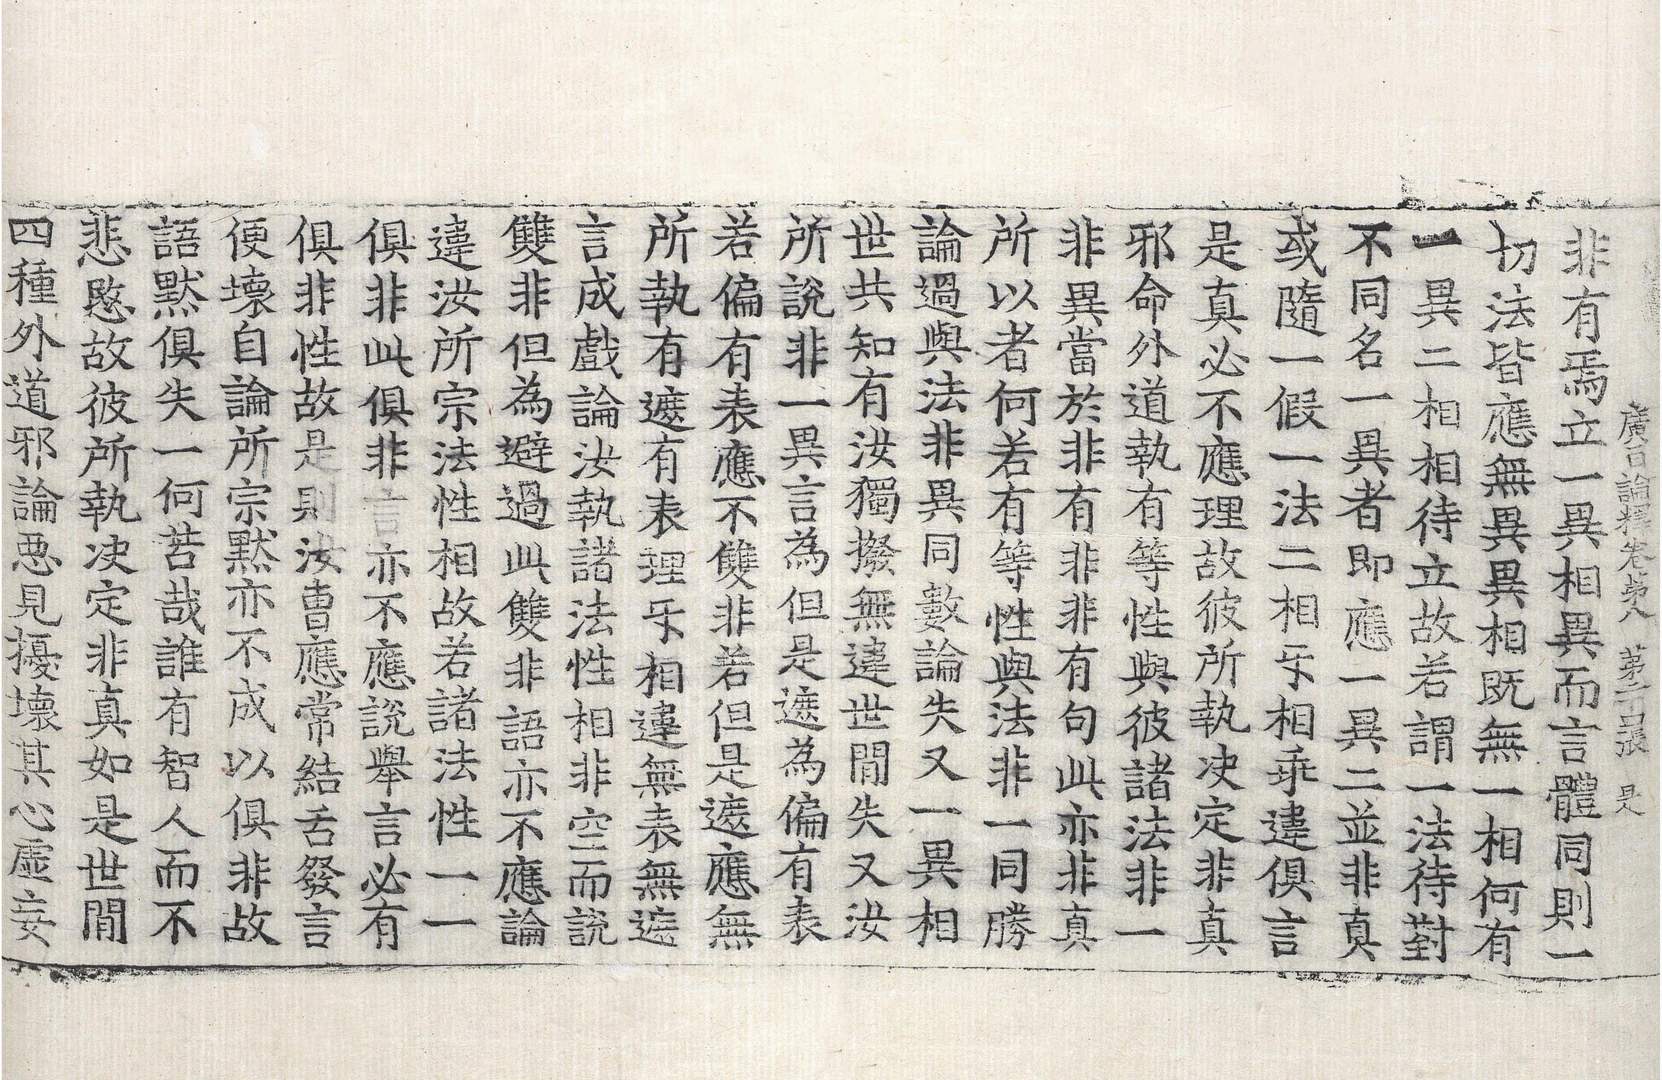 廣百論釋卷第八　第二十三張　是
非有焉立一異相異而言體同則一
切法皆應無異異相既無一相何有
一異二相相待立故若謂一法待對
不同名一異者即應一異二並非真
或隨一假一法二相乖相乖違俱言
是真必不應理故彼所執决定非真
邪命外道執有等性與彼諸法非一
非異當於非有非非有句此亦非真
所以者何若有等性與法非一同勝
論過與法非異同數論失又一異相
世共知有汝獨撥無違世間失又汝
所說非一異言為但是遮為偏有表
若偏有表應不雙非若但是遮應無
所執有遮有表理互相違無表無遮
言成戲論汝執諸法性相非空而說
雙非但為避過此雙非語亦不應論
違汝所宗法性相故若諸法性一一
俱非此俱非言亦不應說舉言必有
俱非性故是則汝曹應常結舌發言
便壞自論所宗默亦不成以俱非故
語默俱失一何苦哉誰有智人而不
悲愍故彼所執决定非真如是世間
四種外道邪論惡見擾壞其心虛妄